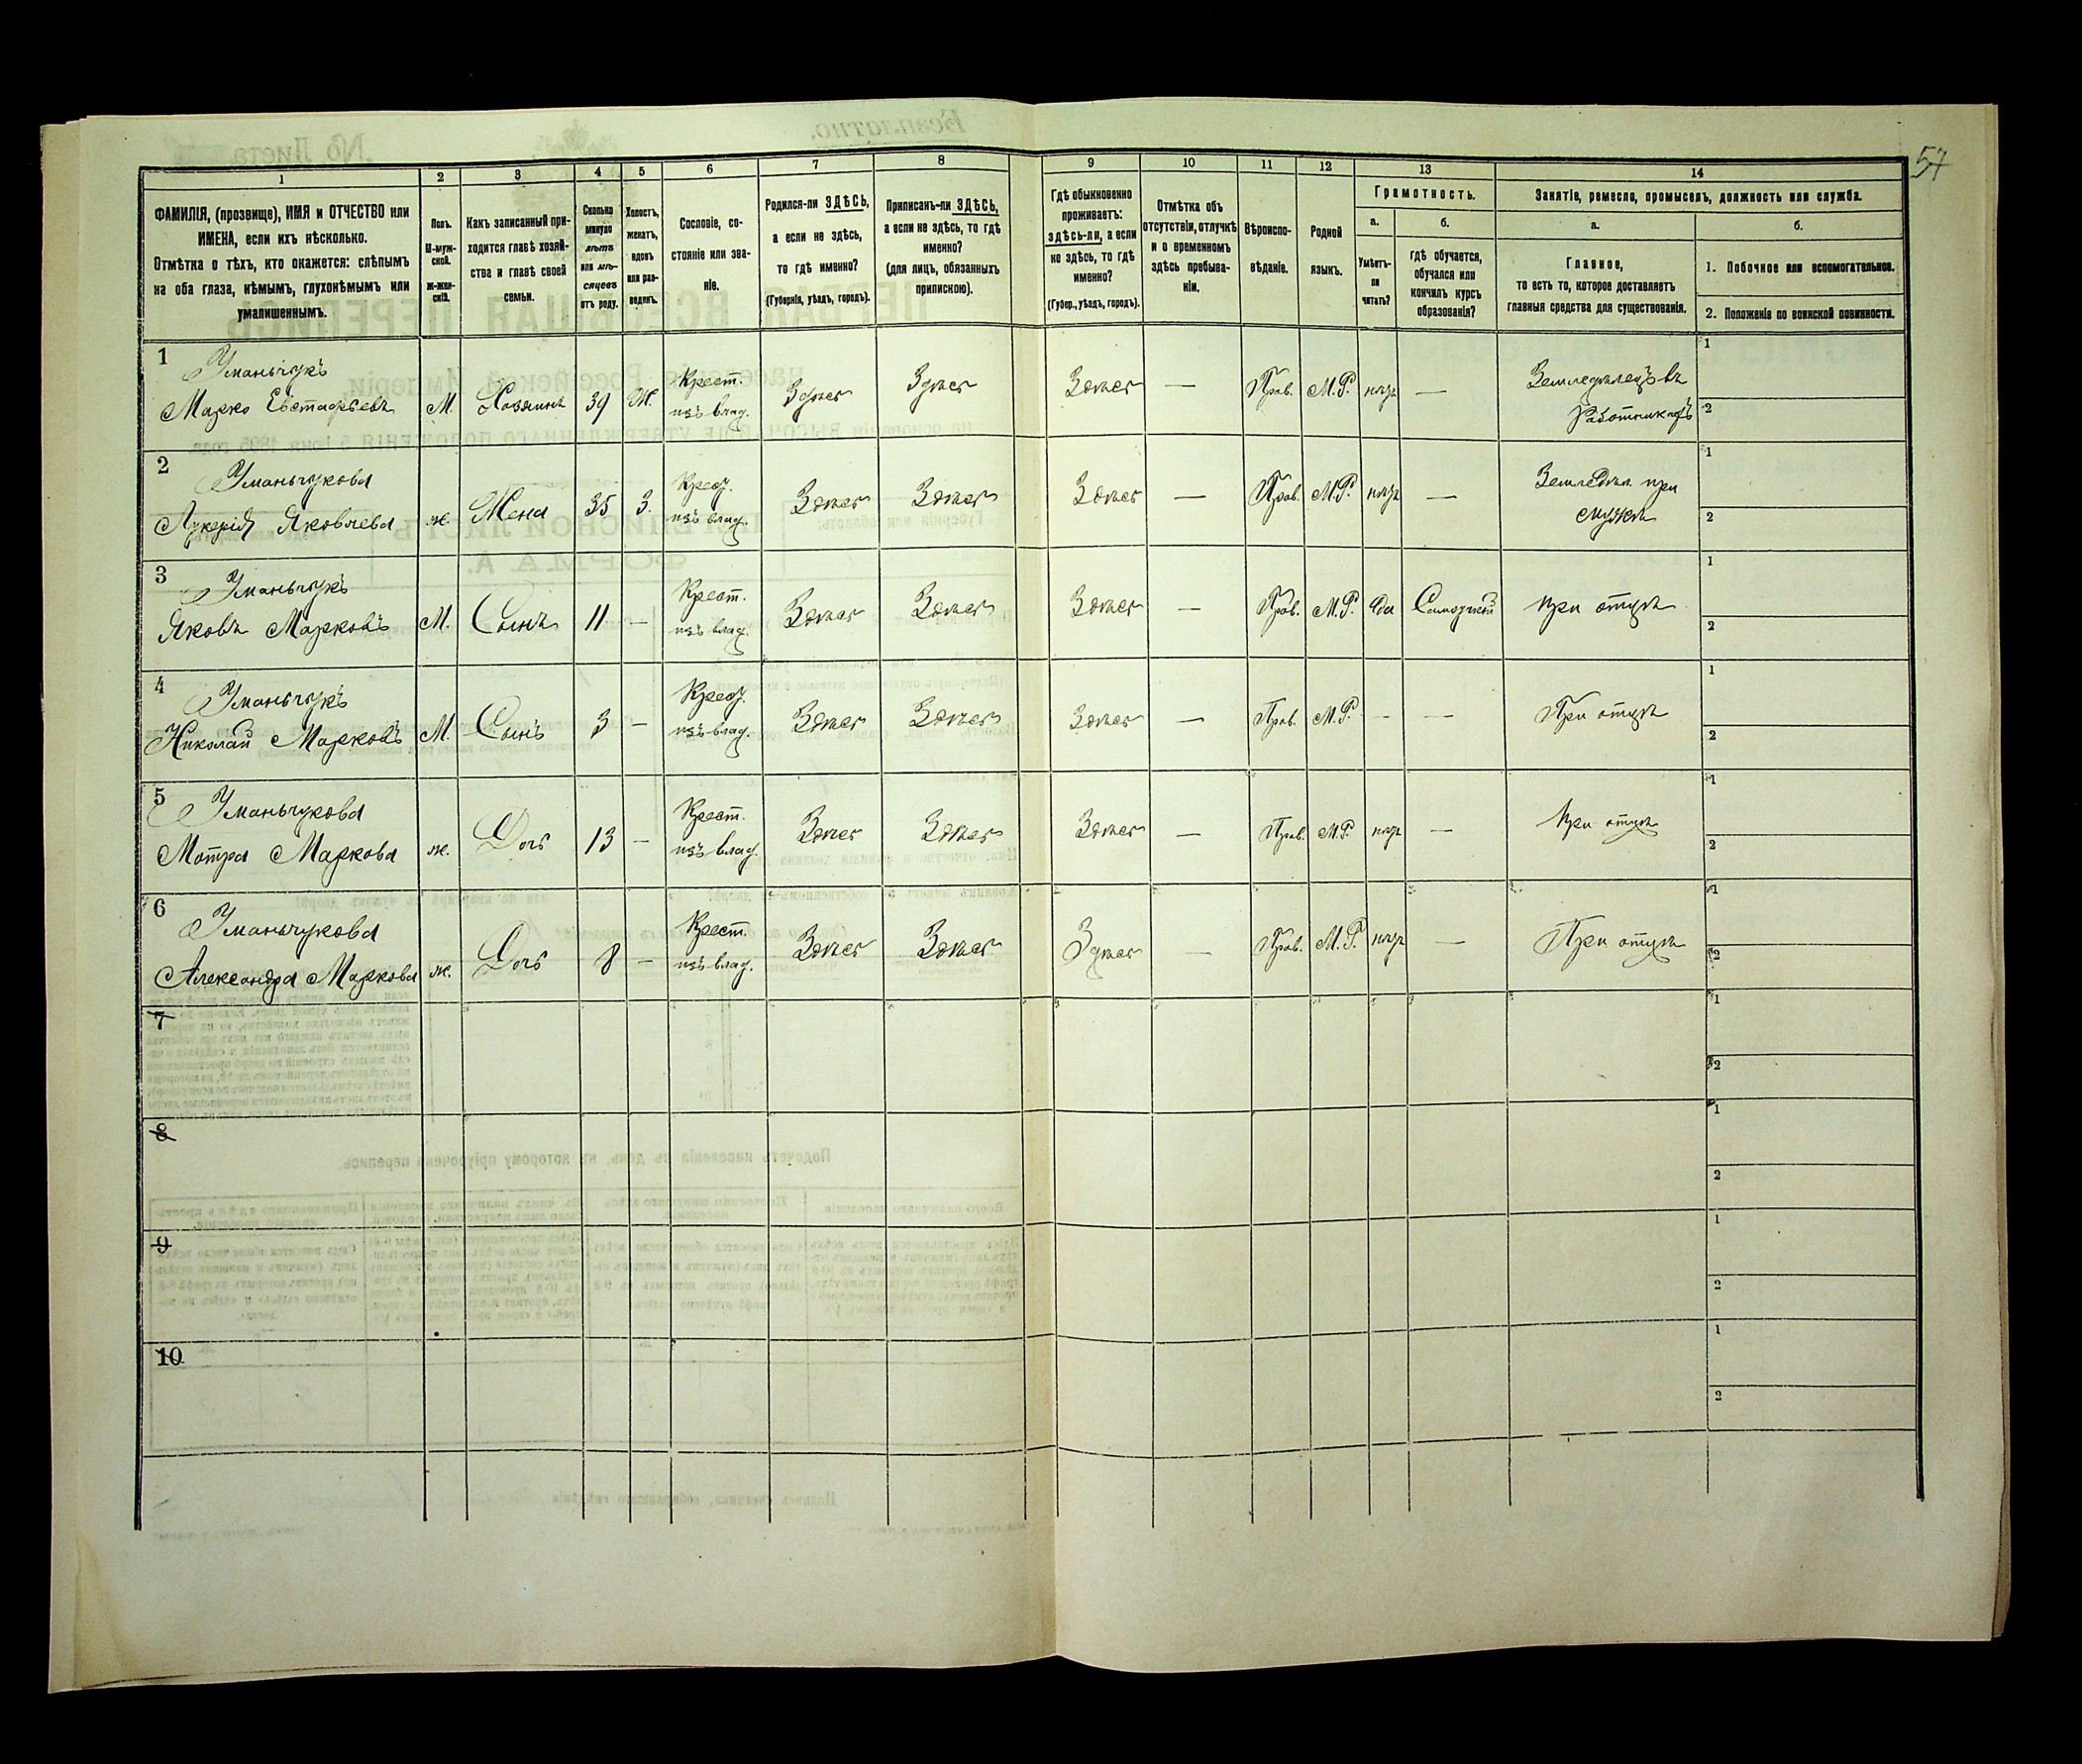 57
1 2 3 4 5 6 7 8 9 10 11 12 13 14
ФАМИЛІЯ, (прозвище), ИМЯ и ОТЧЕСТВО или
ИМЕНА, если ихъ нѣсколько.
Отмѣтка о тѣхъ, кто окажется: слѣпымъ
на оба глаза, нѣмымъ, глухонѣмымъ или
умалишеннымъ.
Полъ.
М-муж-
ской.
ж-жен-
скій.
Какъ записанный при-
ходится главѣ хозяй-
ства и главѣ своей
семьи.
Сколько
минуло
лѣтъ
или мѣ-
сяцевъ
отъ роду.
Холостъ,
женатъ,
вдовъ
или раз-
веденъ.
Сословіе, со-
стояніе или зва-
ніе.
Родился-ли ЗДѢСЬ,
а если не здѣсь,
то гдѣ именно?
(Губернія, уѣздъ, городъ).
Приписанъ-ли ЗДѢСЬ,
а если не здѣсь, то гдѣ
именно?
(для лицъ, обязанныхъ
припиской).
Гдѣ обыкновенно
проживаетъ:
здѣсь-ли, а если
не здѣсь, то гдѣ
именно?
(Губер., уѣздъ, городъ).
Отмѣтка объ
отсутствіи, отлучкѣ
и о временномъ
здѣсь пребыва-
ніи.
Вѣроиспо-
вѣданіе.
Родной
языкъ.
Грамотность.
а.
Умѣетъ-
ли
читать?
б.
гдѣ обучается,
обучался или
кончилъ курсъ
образованія?
Занятіе, ремесло, промыселъ, должность или служба.
а.
Главное,
то есть то, которое доставляетъ
главныя средства для существованія.
б.
1. Побочное или вспомогательное.
2. Положеніе по воинской повинности.
1
Уманьчукъ
Марко Евстафьевъ М. Хозяинъ 39 Ж. Крест. изъ влад. Здѣсь Здѣсь Здѣсь — Прав. М.Р. нѣтъ — Земледѣлецъ въ
1
2
2
Уманьчукова
Лукерія Яковлева ж. Жена 35 З. Крест. изъ влад. Здѣсь Здѣсь Здѣсь — Прав. М.Р. нѣтъ — Земледѣл. при мужѣ
1
2
3
Уманьчукъ
Яковъ Марковъ М. Сынъ 11 — Крест. изъ влад. Здѣсь Здѣсь Здѣсь — Прав. М.Р. да при отцѣ
1
2
4
Уманьчукъ
Николай Марковъ М. Сынъ 3 — Крест. изъ влад. Здѣсь Здѣсь Здѣсь — Прав. М.Р. — — При отцѣ
1
2
5
Уманьчукова
Мотра Маркова ж. Дочь 13 — Крест. изъ влад. Здѣсь Здѣсь Здѣсь — Прав. М.Р. нѣтъ — При отцѣ
1
2
6
Уманьчукова
Александра Маркова ж. Дочь 8 — Крест. изъ влад. Здѣсь Здѣсь Здѣсь — Прав. М.Р. нѣтъ — При отцѣ
1
2
7
1
2
8
1
2
9
1
2
10
1
2